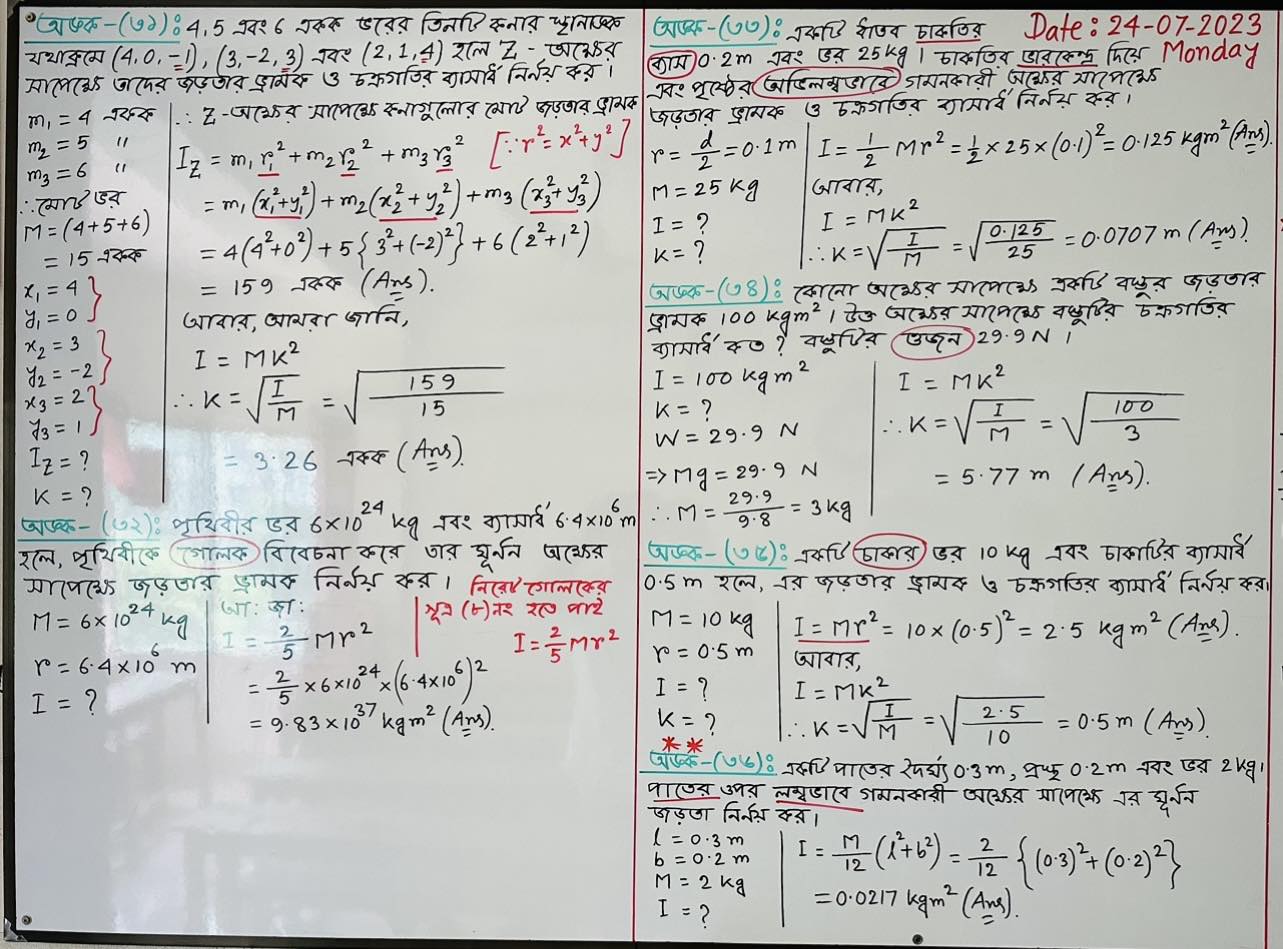 অঙ্ক-(৩১): 4, 5 এবং 6 একক ভরের তিনটি কনার স্থানাঙ্ক
যথাক্রমে (4, 0, -1), (3, -2, 3) এবং (2, 1, 4) হলে Z - অক্ষের
সাপেক্ষে তাদের জড়তার ভ্রামক ও চক্রগতির ব্যাসার্ধ নির্নয় কর।
m₁ = 4 একক
m₂ = 5 "
m₃ = 6 "
∴ মোট ভর
M = (4+5+6)
= 15 একক
x₁ = 4
y₁ = 0
x₂ = 3
y₂ = -2
x₃ = 2
y₃ = 1
I_Z = ?
K = ?
∴ Z-অক্ষের সাপেক্ষে কনাগুলোর মোট জড়তার ভ্রামক
I_Z = m₁r₁² + m₂r₂² + m₃r₃² [∵ r² = x² + y²]
= m₁(x₁²+y₁²) + m₂(x₂²+y₂²) + m₃(x₃²+y₃²)
= 4(4²+0²) + 5{3²+(-2)²} + 6(2²+1²)
= 159 একক (Ans).
আবার, আমরা জানি,
I = MK²
∴ K = √(I/M) = √(159/15)
= 3.26 একক (Ans).
অঙ্ক-(৩২): পৃথিবীর ভর 6×10²⁴ kg এবং ব্যাসার্ধ 6.4×10⁶ m
হলে, পৃথিবীকে গোলক বিবেচনা করে তার ঘূর্নন অক্ষের
সাপেক্ষে জড়তার ভ্রামক নির্নয় কর।
M = 6×10²⁴ kg
r = 6.4×10⁶ m
I = ?
আ: জা:
I = 2/5 Mr²
= 2/5 × 6×10²⁴ × (6.4×10⁶)²
= 9.83×10³⁷ kgm² (Ans).
নিরেট গোলকের
সূত্র (৮) নং হতে পাই
I = 2/5 Mr²
Date: 24-07-2023
Monday
অঙ্ক-(৩৩): একটি ধাতব চাকতির
ব্যাস 0.2m এবং ভর 25kg। চাকতির ভারকেন্দ্র দিয়ে
এবং পৃষ্ঠের অভিলম্বভাবে গমনকারী অক্ষের সাপেক্ষে
জড়তার ভ্রামক ও চক্রগতির ব্যাসার্ধ নির্নয় কর।
r = d/2 = 0.1 m
M = 25 kg
I = ?
K = ?
I = 1/2 Mr² = 1/2 × 25 × (0.1)² = 0.125 kgm² (Ans).
আবার,
I = MK²
∴ K = √(I/M) = √(0.125/25) = 0.0707 m (Ans).
অঙ্ক-(৩৪): কোনো অক্ষের সাপেক্ষে একটি বস্তুর জড়তার
ভ্রামক 100 kgm²। উক্ত অক্ষের সাপেক্ষে বস্তুটির চক্রগতির
ব্যাসার্ধ কত? বস্তুটির ওজন 29.9 N।
I = 100 kgm²
K = ?
W = 29.9 N
⇒ Mg = 29.9 N
∴ M = 29.9/9.8 = 3kg
I = MK²
∴ K = √(I/M) = √(100/3)
= 5.77 m (Ans).
অঙ্ক-(৩৫): একটি চাকার ভর 10 kg এবং চাকাটির ব্যাসার্ধ
0.5 m হলে, এর জড়তার ভ্রামক ও চক্রগতির ব্যাসার্ধ নির্নয় কর।
M = 10 kg
r = 0.5 m
I = ?
K = ?
I = Mr² = 10×(0.5)² = 2.5 kgm² (Ans).
আবার,
I = MK²
∴ K = √(I/M) = √(2.5/10) = 0.5 m (Ans).
**
অঙ্ক-(৩৬): একটি পাতের দৈর্ঘ্য 0.3m, প্রস্থ 0.2m এবং ভর 2kg।
পাতের ওপর লম্বভাবে গমনকারী অক্ষের সাপেক্ষে এর ঘূর্নন
জড়তা নির্নয় কর।
l = 0.3 m
b = 0.2 m
M = 2 kg
I = ?
I = M/12 (l²+b²) = 2/12 {(0.3)²+(0.2)²}
= 0.0217 kgm² (Ans).